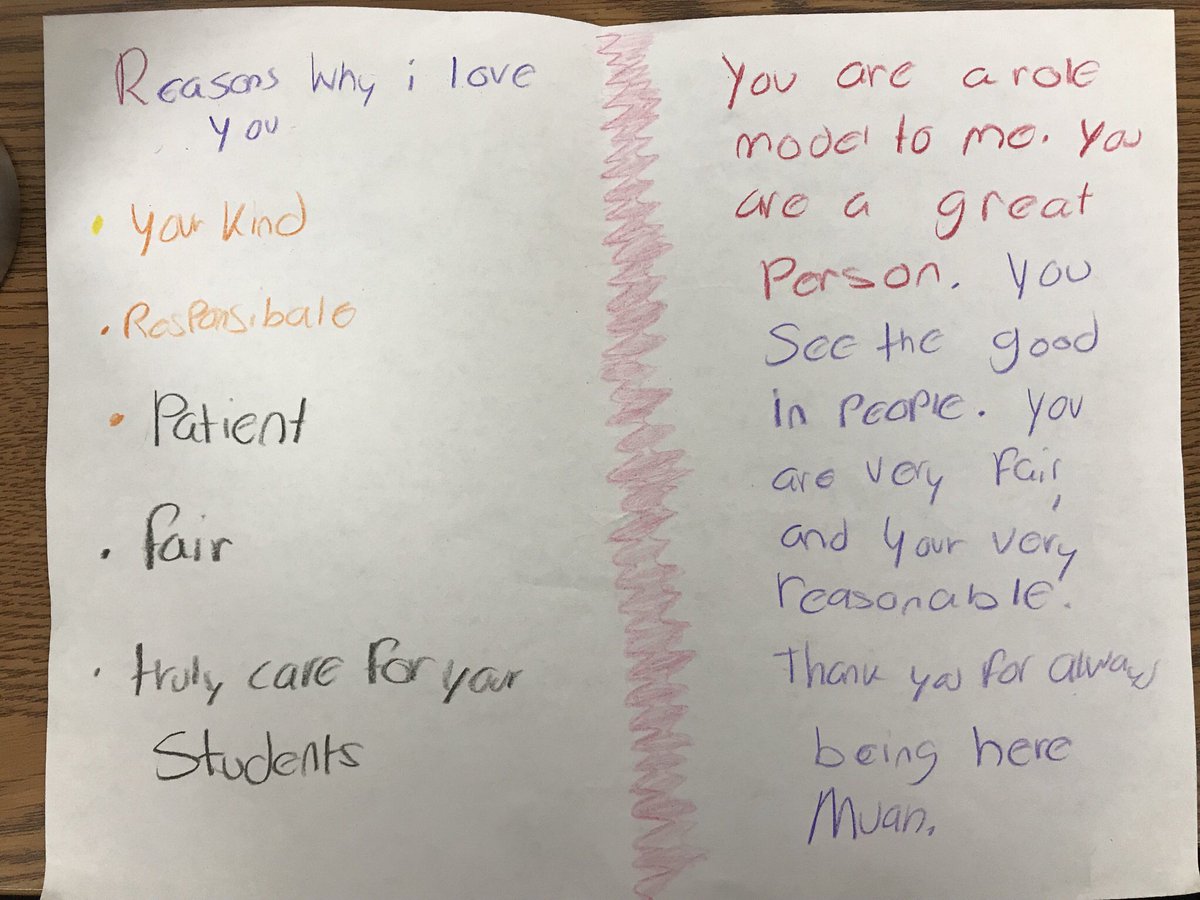 Reasons Why i love
you
• Your Kind
• Responsibale
• Patient
• fair
• truly care for your
Students
You are a role
model to me. You
are a great
Person. You
See the good
in people. You
are very fair,
and your very
reasonable.
Thank you for always
being here
Muan.